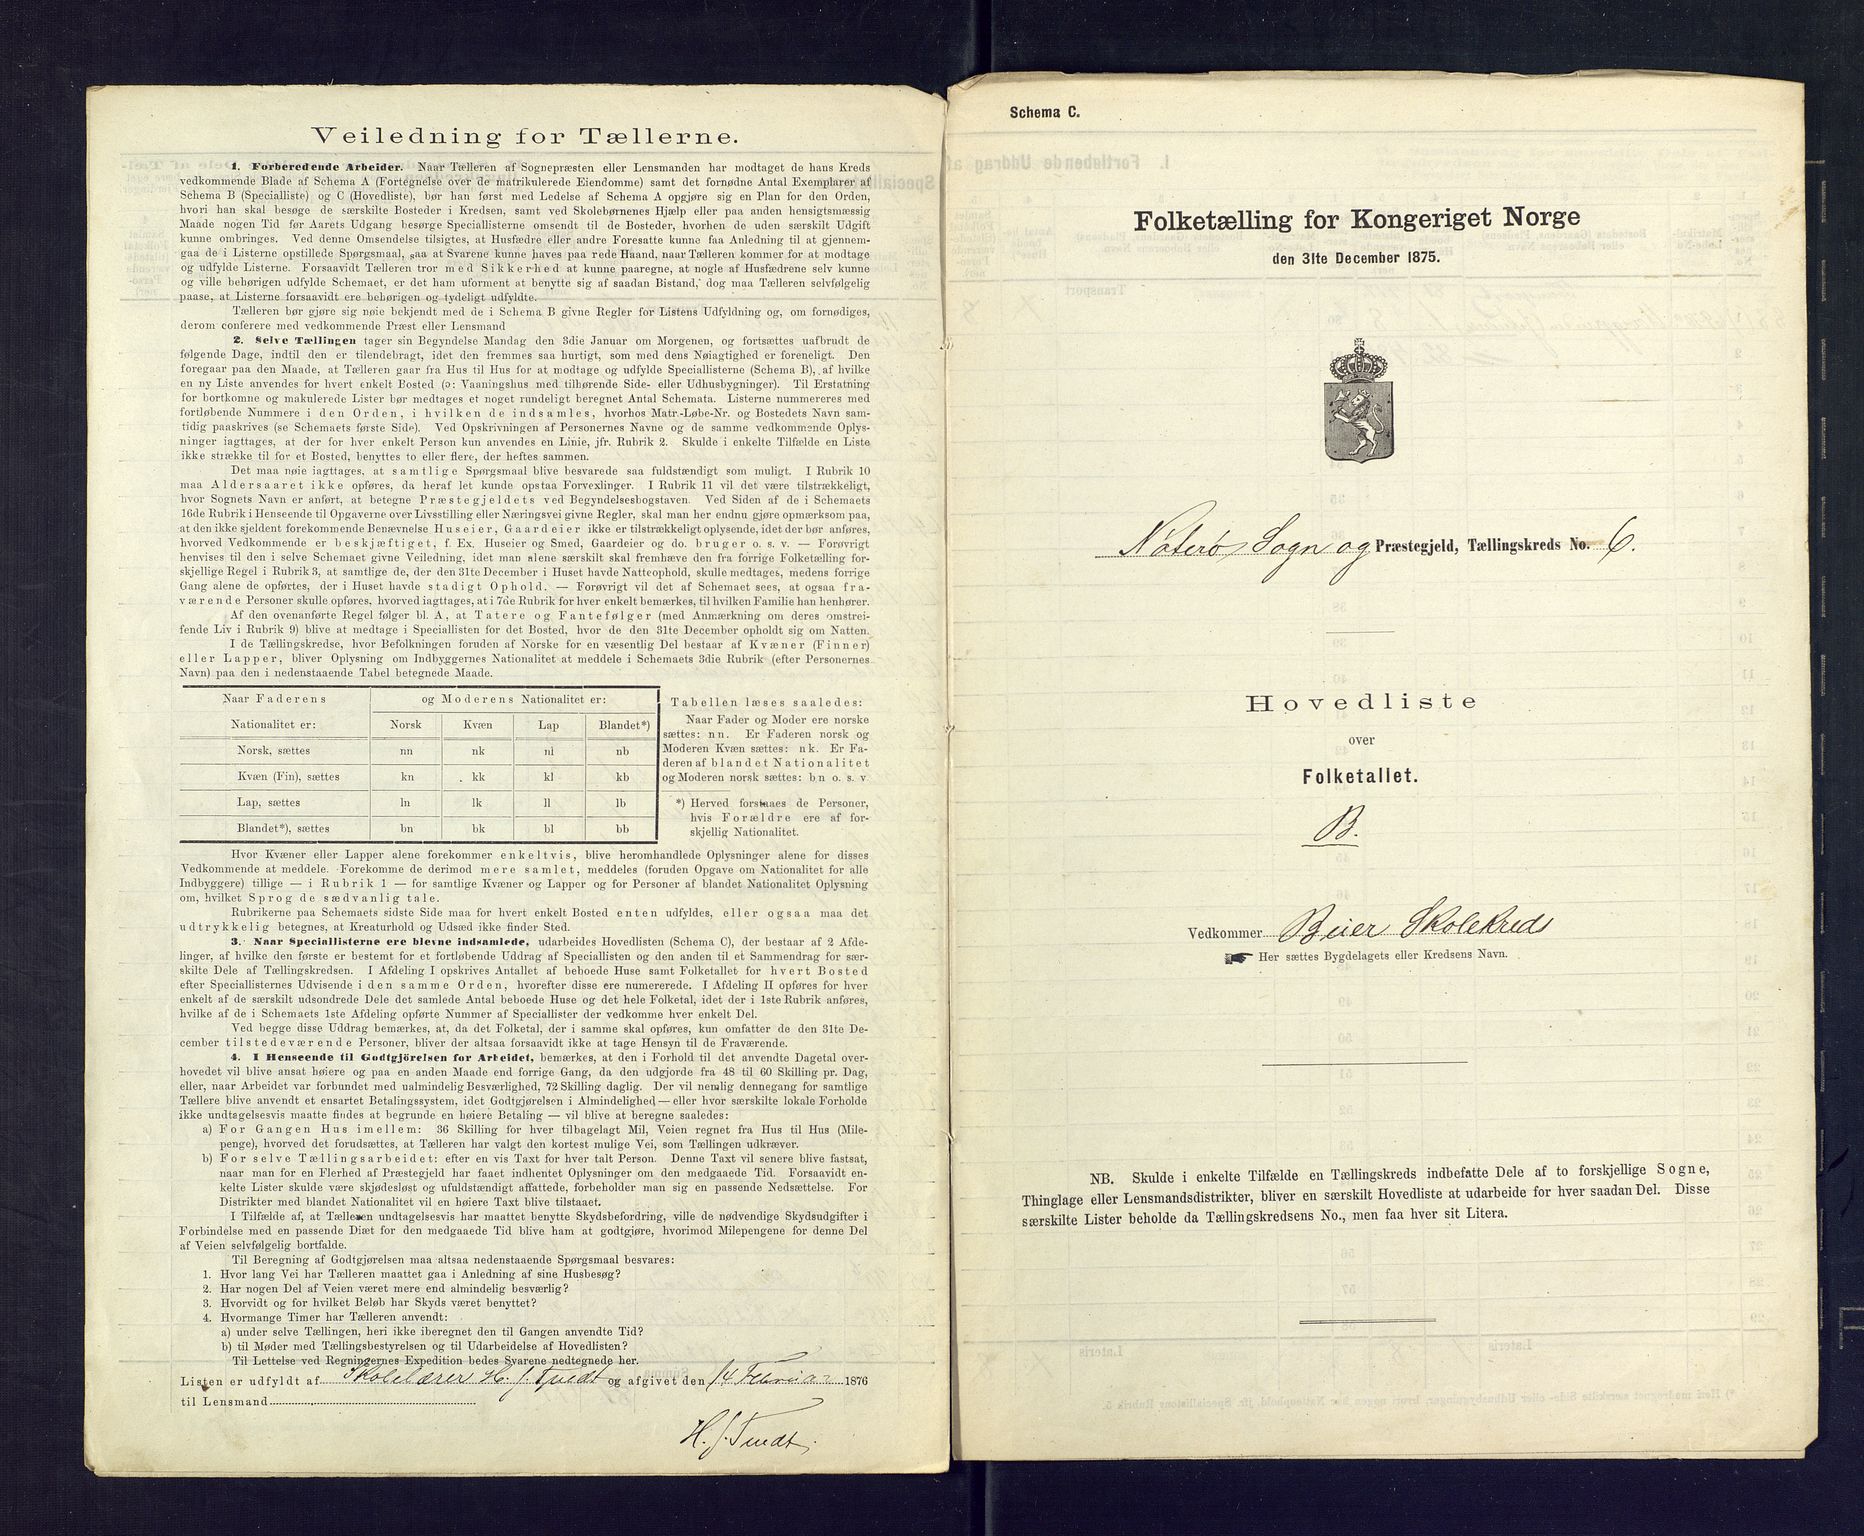 Veiledning for Tællerne.
1. Forberedende Arbeider. Naar Tælleren af Sognepræsten eller Lensmanden har modtaget de hans Kreds
vedkommende Blade af Schema A (Fortegnelse over de matrikulerede Eiendomme) samt det fornødne Antal Exemplarer af
Schema B (Specialliste) og C (Hovedliste), bør han først med Ledelse af Schema A opgjøre sig en Plan for den Orden,
hvori han skal besøge de særskilte Bosteder i Kredsen, samt ved Skolebørnenes Hjælp eller paa anden hensigtsmæssig
Maade nogen Tid før Aarets Udgang besørge Speciallisterne omsendt til de Bosteder, hvorhen de uden særskilt Udgift
kunne ombringes. Ved denne Omsendelse tilsigtes, at Husfædre eller andre Foresatte kunne faa Anledning til at gjennem-
gaa de i Listerne opstillede Spørgsmaal, saa at Svarene kunne haves paa rede Haand, naar Tælleren kommer for at modtage
og udfylde Listerne. Forsaavidt Tælleren tror med Sikkerhed at kunne paaregne, at nogle af Husfædrene selv kunne
og ville behørigen udfylde Schemaet, er det ham uforment at benytte sig af saadan Bistand, dog maa Tælleren selvfølgelig
paase, at Listerne forsaavidt ere behørigen og tydeligt udfyldte.
Tælleren bør gjøre sig nøie bekjendt med de i Schema B givne Regler for Listens Udfyldning og, om fornødiges,
derom conferere med vedkommende Præst eller Lensmand
2. Selve Tællingen tager sin Begyndelse Mandag den 3die Januar om Morgenen, og fortsættes uafbrudt de
følgende Dage, indtil den er tilendebragt, idet den fremmes saa hurtigt, som med dens Nøiagtighed er foreneligt. Den
foregaar paa den Maade, at Tælleren gaar fra Hus til Hus for at modtage og udfylde Speciallisterne (Schema B), af hvilke
en ny Liste anvendes for hvert enkelt Bosted (ɔ: Vaaningshus med tilhørende Side- eller Udhusbygninger). Til Erstatning
for bortkomne og makulerede Lister bør medtages et noget rundeligt beregnet Antal Schemata. Listerne nummereres med
fortløbende Nummere i den Orden, i hvilken de indsamles, hvorhos Matr.-Løbe-Nr. og Bostedets Navn sam-
tidig paaskrives (se Schemaets første Side). Ved Opskrivningen af Personernes Navne og de samme vedkommende Oplys-
ninger iagttages, at der for hver enkelt Person kun anvendes en Linie, jfr. Rubrik 2. Skulde i enkelte Tilfælde en Liste
ikke strække til for et Bosted, benyttes to eller flere, der heftes sammen.
Det maa nøie iagttages, at samtlige Spørgsmaal blive besvarede saa fuldstændigt som muligt. I Rubrik 10
maa Aldersaaret ikke opføres, da heraf let kunde opstaa Forvexlinger. I Rubrik 11 vil det være tilstrækkeligt,
hvor Sognets Navn er anført, at betegne Præstegjeldets ved Begyndelsesbogstaven. Ved Siden af de i Schemaets
16de Rubrik i Henseende til Opgaverne over Livsstilling eller Næringsvei givne Regler, skal man her endnu gjøre opmærksom paa,
at den ikke sjeldent forekommende Benævnelse Huseier, Gaardeier ikke er tilstrækkeligt oplysende, idet der bør anføres,
hvorved Vedkommende er beskjæftiget, f. Ex. Huseier og Smed, Gaardeier og do. bruger o. s. v. — Forøvrigt
henvises til den i selve Schemaet givne Veiledning, idet man alene særskilt skal fremhæve den fra forrige Folketælling for-
skjellige Regel i Rubrik 3, at samtlige de, der den 31te December i Huset havde Natteophold, skulle medtages, medens forrige
Gang alene de opførtes, der i Huset havde stadigt Ophold. — Forøvrigt vil det af Schemaet sees, at ogsaa fra-
værende Personer skulle opføres, hvorved iagttages, at i 7de Rubrik for hver enkelt bemærkes, til hvilken Familie han henhører.
Af den ovenanførte Regel følger bl. A., at Tatere og Fantefølger (med Anmærkning om deres omstrei-
fende Liv i Rubrik 9) blive at medtage i Speciallisten for det Bosted, hvor de den 31te December opholdt sig om Natten.
I de Tællingskredse, hvor Befolkningen foruden af Norske for en væsentlig Del bestaar af Kvæner (Finner)
eller Lapper, bliver Oplysning om Indbyggernes Nationalitet at meddele i Schemaets 3die Rubrik (efter Personernes
Navn) paa den i nedenstaaende Tabel betegnede Maade.
Naar Faderens og Moderens Nationalitet er:
Nationalitet er: Norsk Kvæn Lap Blandet*)
Norsk, sættes nn nk nl nb
Kvæn (Fin), sættes kn kk kl kb
Lap, sættes ln lk ll lb
Blandet*), sættes bn bk bl bb
Tabellen læses saaledes:
Naar Fader og Moder ere norske
sættes: nn. Er Faderen norsk og
Moderen Kvæn sættes: nk. Er Fa-
deren af blandet Nationalitet
og Moderen norsk sættes: bn o. s. v
*) Herved forstaaes de Personer,
hvis Forældre ere af for-
skjellig Nationalitet.
Hvor Kvæner eller Lapper alene forekommer enkeltvis, blive heromhandlede Oplysninger alene for disses
Vedkommende at meddele. Forekomme de derimod mere samlet, meddeles (foruden Opgave om Nationalitet for alle
Indbyggere) tillige — i Rubrik 1 — for samtlige Kvæner og Lapper og for Personer af blandet Nationalitet Oplysning
om, hvilket Sprog de sædvanlig tale.
Rubrikerne paa Schemaets sidste Side maa for hvert enkelt Bosted enten udfyldes, eller ogsaa maa det
udtrykkelig betegnes, at Kreaturhold og Udsæd ikke finder Sted.
3. Naar Speciallisterne ere blevne indsamlede, udarbeides Hovedlisten (Schema C), der bestaar af 2 Afde-
linger, af hvilke den første er bestemt for et fortløbende Uddrag af Speciallisten og den anden til et Sammendrag for sær-
skilte Dele af Tællingskredsen. I Afdeling I opskrives Antallet af beboede Huse samt Folketallet for hvert Bosted
efter Speciallisternes Udvisende i den samme Orden, hvorefter disse ere numererede. I Afdeling II opføres for hver
enkelt af de særskilt udsondrede Dele det samlede Antal beboede Huse og det hele Folketal, idet der i 1ste Rubrik anføres,
hvilke af de i Schemaets 1ste Afdeling opførte Nummer af Speciallister der vedkomme hver enkelt Del.
Ved begge disse Uddrag bemærkes, at, da det Folketal, der i samme skal opføres, kun omfatter de den 31te De-
cember tilstedeværende Personer, bliver der altsaa forsaavidt ikke at tage Hensyn til de Fraværende.
4. I Henseende til Godtgjörelsen for Arbeidet, bemærkes, at den i Forhold til det anvendte Dagetal over-
hovedet vil blive ansat høiere og paa en anden Maade end forrige Gang, da den udgjorde fra 48 til 60 Skilling pr. Dag,
eller, naar Arbeidet var forbundet med ualmindelig Besværlighed, 72 Skilling daglig. Der vil nemlig dennegang for samtlige
Tællere blive anvendt et ensartet Betalingssystem, idet Godtgjørelsen i Almindelighed — eller hvor særskilte lokale Forholde
ikke undtagelsesvis maatte findes at begrunde en høiere Betaling — vil blive at beregne saaledes:
a) For Gangen Hus imellem: 36 Skilling for hver tilbagelagt Mil, Veien regnet fra Hus til Hus (Mile-
penge), hvorved det forudsættes, at Tælleren har valgt den kortest mulige Vei, som Tællingen udkræver.
b) For selve Tællingsarbeidet: efter en vis Taxt for hver talt Person. Denne Taxt vil senere blive fastsat,
naar man for en Flerhed af Præstegjeld har faaet indhentet Oplysninger om den medgaaede Tid. Forsaavidt en-
kelte Lister skulde være skjødesløst og ufuldstændigt affattede, forbeholder man sig en passende Nedsættelse. For
Distrikter med blandet Nationalitet vil en høiere Taxt blive tilstaaet.
I Tilfælde af, at Tælleren undtagelsesvis har maattet benytte Skydsbefordring, ville de nødvendige Skydsudgifter i
Forbindelse med en passende Diæt for den medgaaede Tid blive ham at godtgjøre, hvorimod Milepengene for denne Del
af Veien selvfølgelig bortfalde.
Til Beregning af Godtgjørelsen maa altsaa nedenstaaende Spørgsmaal besvares:
1. Hvor lang Vei har Tælleren maattet gaa i Anledning af sine Husbesøg?
2. Har nogen Del af Veien været mere end almindelig besværlig?
3. Hvorvidt og for hvilket Beløb har Skyds været benyttet?
4. Hvormange Timer har Tælleren anvendt:
a) under selve Tællingen, heri ikke iberegnet den til Gangen anvendte Tid?
b) til Møder med Tællingsbestyrelsen og til Udarbeidelse af Hovedlisten?
Til Lettelse ved Regningernes Expedition bedes Svarene nedtegnede her.
Listen er udfyldt af Skolelærer H. J. Tvedt og afgivet den 14 Februar 1876
til Lensmand
H. J. Tvedt.
Schema C.
Folketælling for Kongeriget Norge
den 31te December 1875.
Nøterø Sogn og Præstegjeld, Tællingskreds No. 6.
Hovedliste
over
Folketallet.
B.
Vedkommer Buer Skolekreds
Her sættes Bygdelagets eller Kredsens Navn.
NB. Skulde i enkelte Tilfælde en Tællingskreds indbefatte Dele af to forskjellige Sogne,
Thinglage eller Lensmandsdistrikter, bliver en særskilt Hovedliste at udarbeide for hver saadan Del. Disse
særskilte Lister beholde da Tællingskredsens No., men faa hver sit Litera.